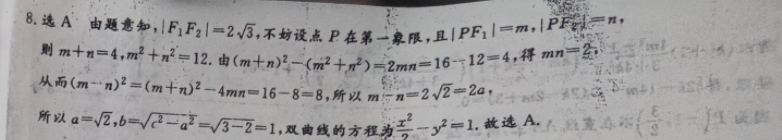 8. 选 A 由题意知,|F₁F₂|=2√3,不妨设点 P 在第一象限,且|PF₁|=m,|PF₂|=n,
则 m+n=4,m²+n²=12. 由(m+n)²-(m²+n²)=2mn=16-12=4,得 mn=2,
从而(m-n)²=(m+n)²-4mn=16-8=8,所以 m-n=2√2=2a,
所以 a=√2,b=√(c²-a²)=√(3-2)=1,双曲线的方程为x²/2-y²=1. 故选 A.